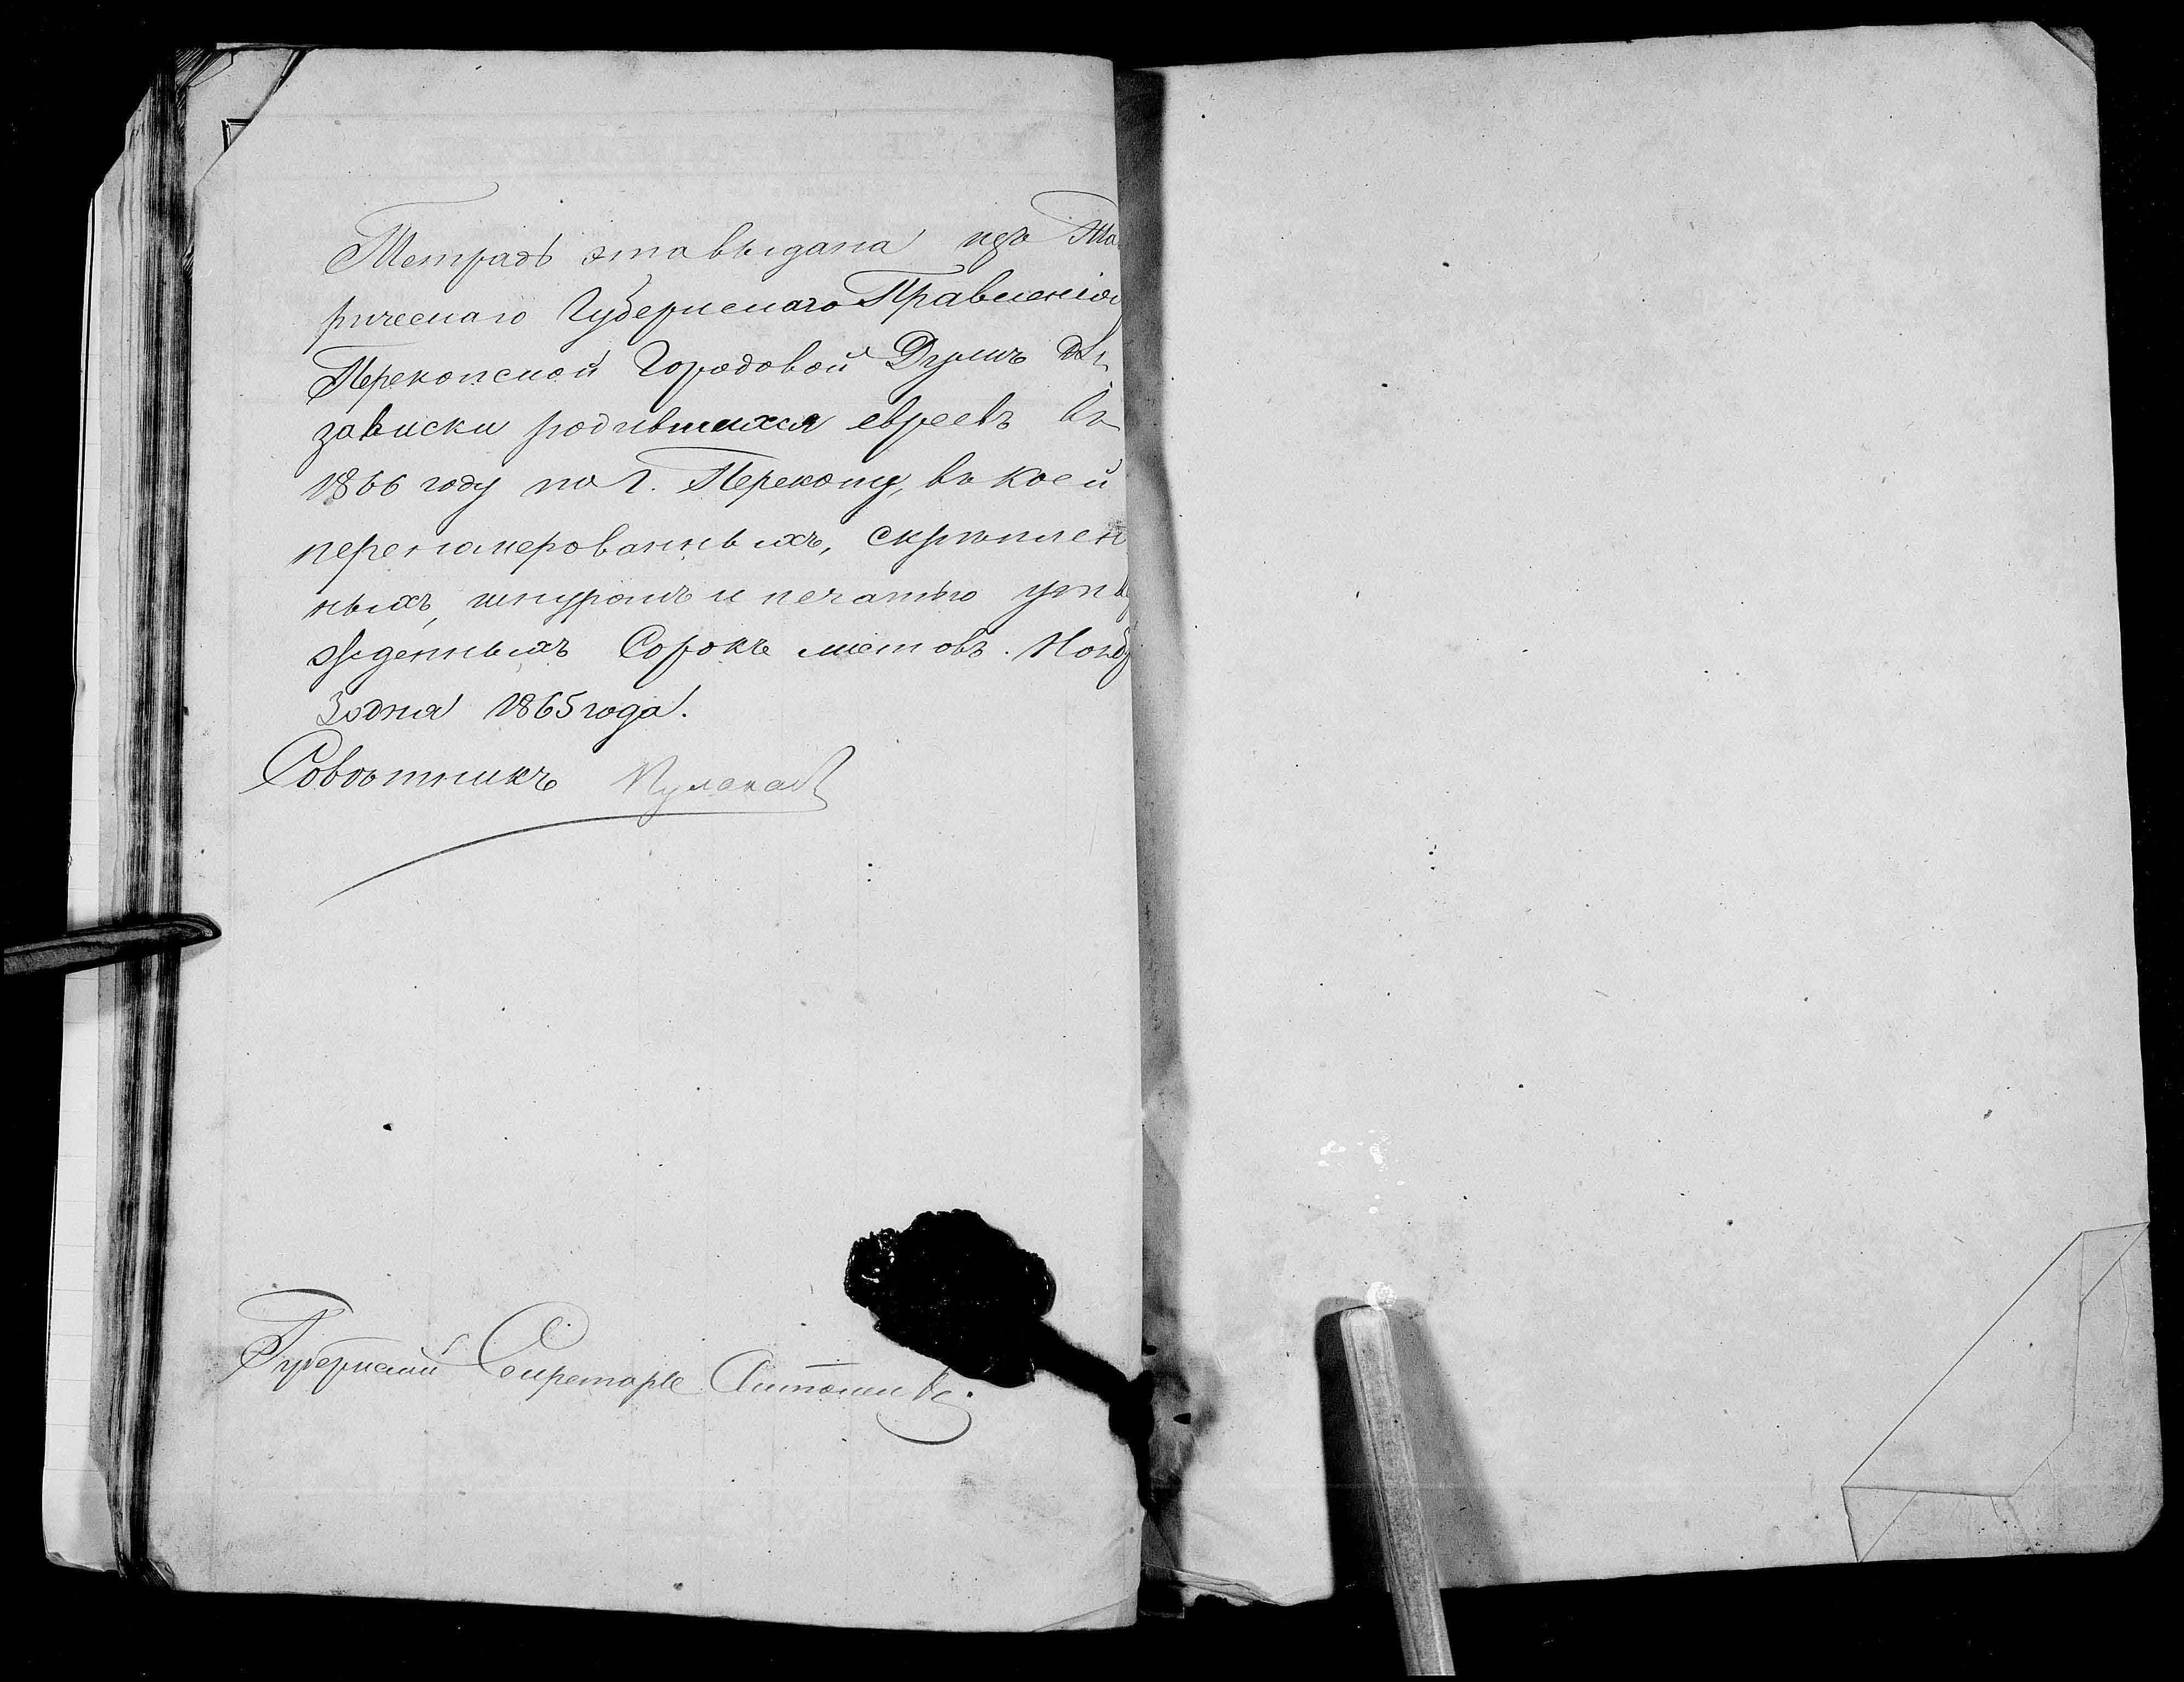 Тетрадь эта выдана изъ Та
рическаго Губернскаго Правленія
Перекопской Городовой Думѣ для
записки родившихся евреевъ въ
1866 году по г. Перекопу, въ коей
перенумерованныхъ, скрѣплен
ныхъ, шнуромъ и печатью утвер
жденныхъ Сорокъ листовъ. Нояб
30 дня 1865 года.
Совѣтникъ
Губернскій Секретарь